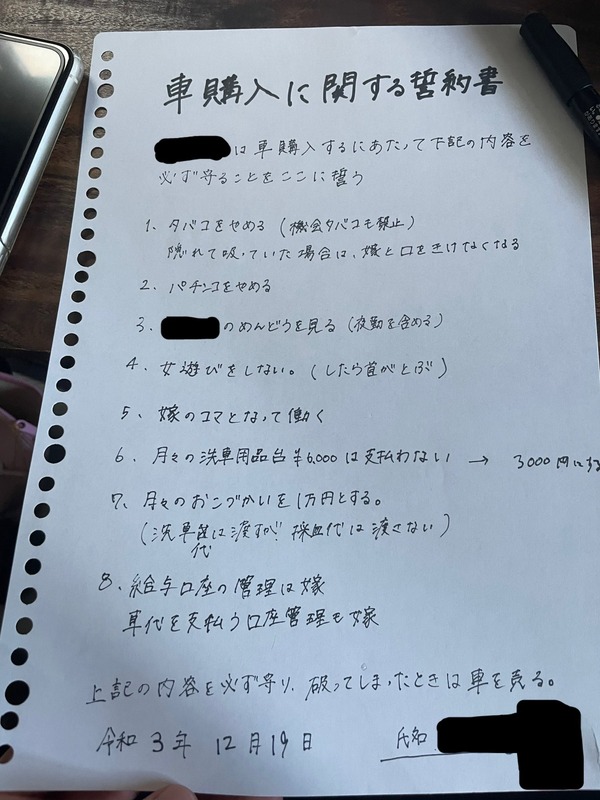 車購入に関する誓約書
は車購入するにあたって下記の内容を
必ず守ることをここに誓う
1、タバコをやめる(機会タバコも禁止)
隠れて吸っていた場合は、嫁と口をきけなくなる
2、パチンコをやめる
3、のめんどうを見る(夜勤を含める)
4、女遊びをしない。(したら首がとぶ)
5、嫁のコマとなって働く
6、月々の洗車用品台¥6,000は支払わない → 3000円にする
7、月々のおこづかいを1万円とする。
(洗車代は渡すが!採血代は渡さない)
8、給与口座の管理は嫁
車代を支払う口座管理も嫁
上記の内容を必ず守り、破ってしまったときは車を売る。
令和3年12月19日 氏名